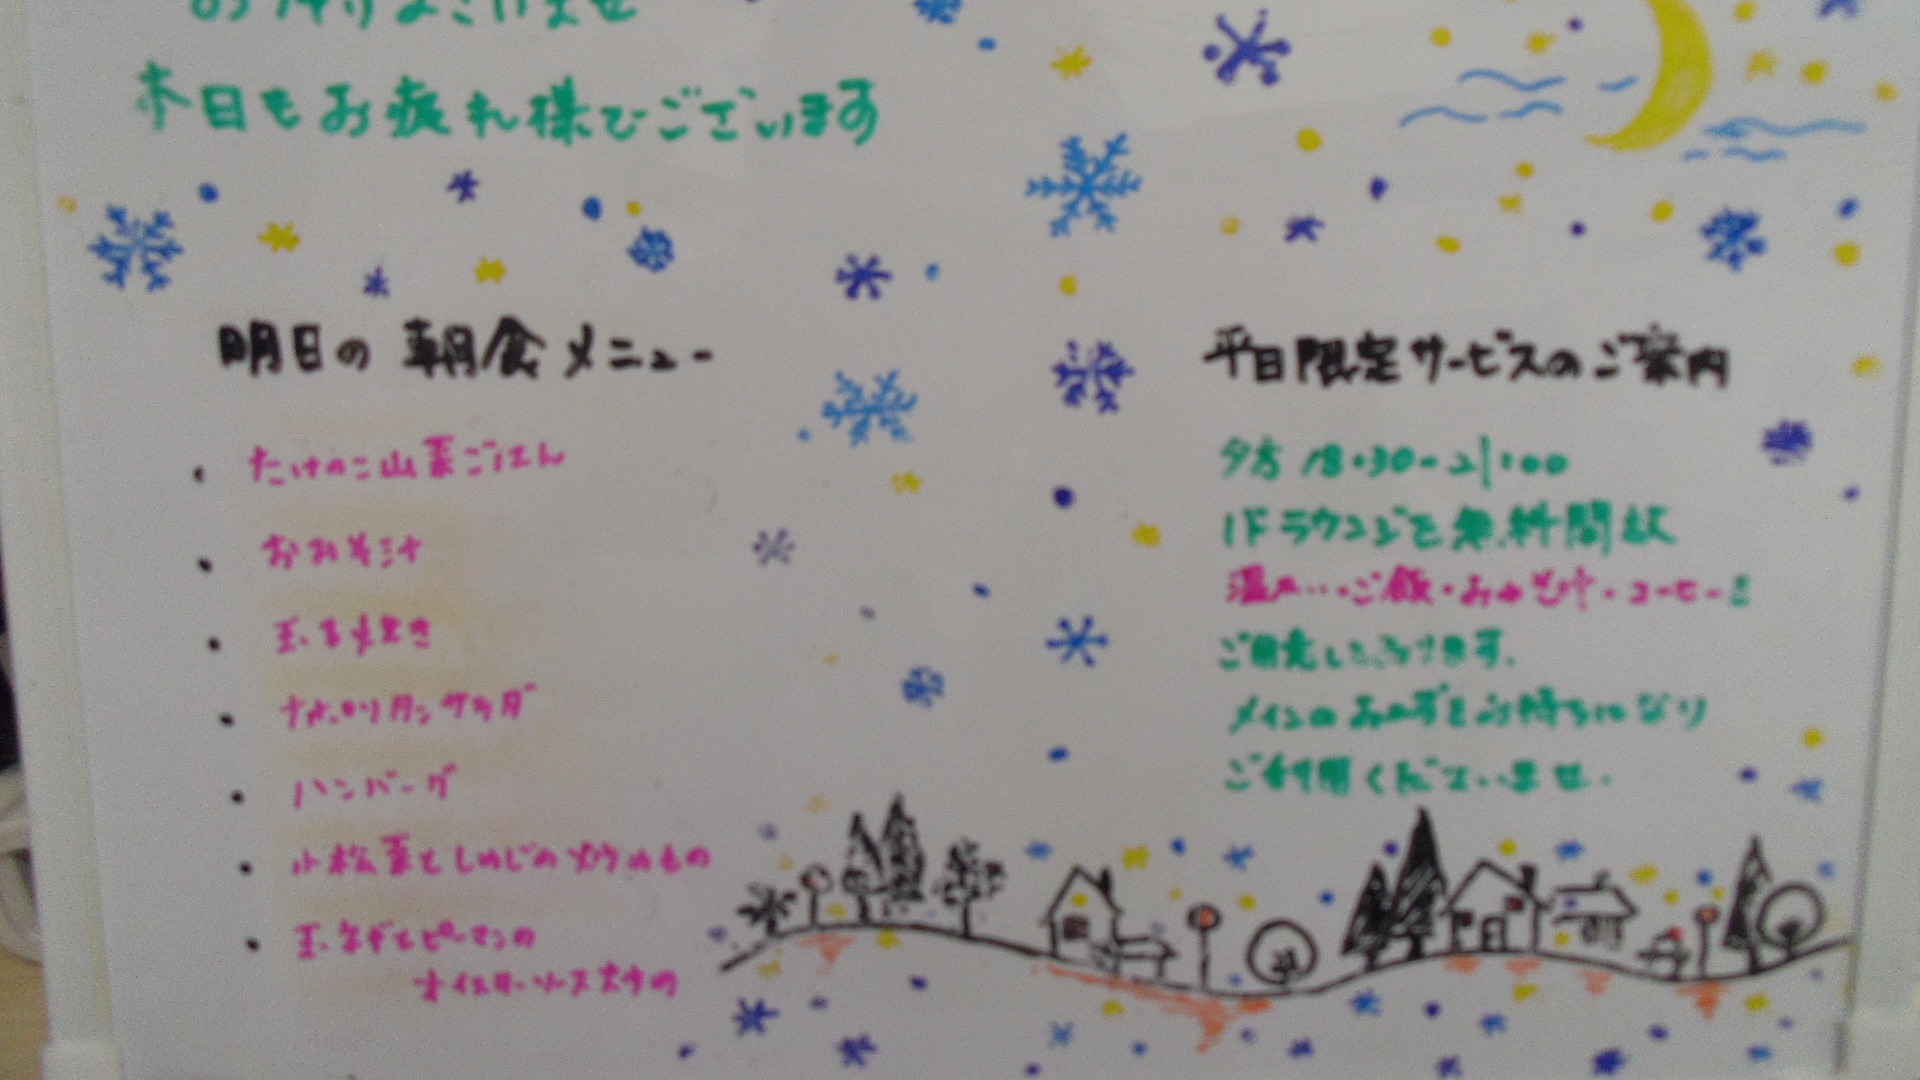 お帰りなさいませ
本日もお疲れ様でございます
明日の朝食メニュー
・たけのこ山菜ごはん
・おみそ汁
・玉子焼き
・ナポリタンサラダ
・ハンバーグ
・小松菜としめじの炒めもの
・玉ネギとピーマンの
オイスターソース炒め
平日限定サービスのご案内
夕方 18:30-21:00
1Fラウンジを無料開放
温かい・ご飯・おみそ汁・コーヒーを
ご用意しております。
メインのおかずをお持ちになり
ご利用くださいませ。